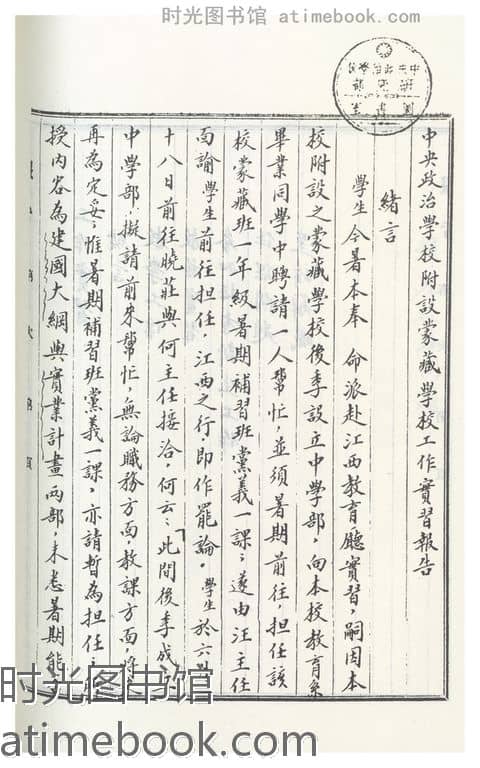 时光图书馆 atimebook.com
中央政治學校附設蒙藏學校工作實習報告
緒言
學生今暑本奉 命派赴江西教育廳實習，嗣因本
校附設之蒙藏學校後季設立中學部，向本校教育系
畢業同學中聘請一人幫忙，並須暑期前往，担任該
校蒙藏班一年級暑期補習班黨義一課；遂由汪主任
面諭學生前往担任，江西之行，即作罷論。學生於六月
十八日前往曉莊與何主任接洽，何云：「此間後季成立
中學部，擬請前來幫忙，無論職務方面，教課方面，
再為定妥；惟暑期補習班黨義一課，亦請暫為担任
授內容為建國大綱與實業計畫兩部，未悉暑期能
时光图书馆
atimebook.com